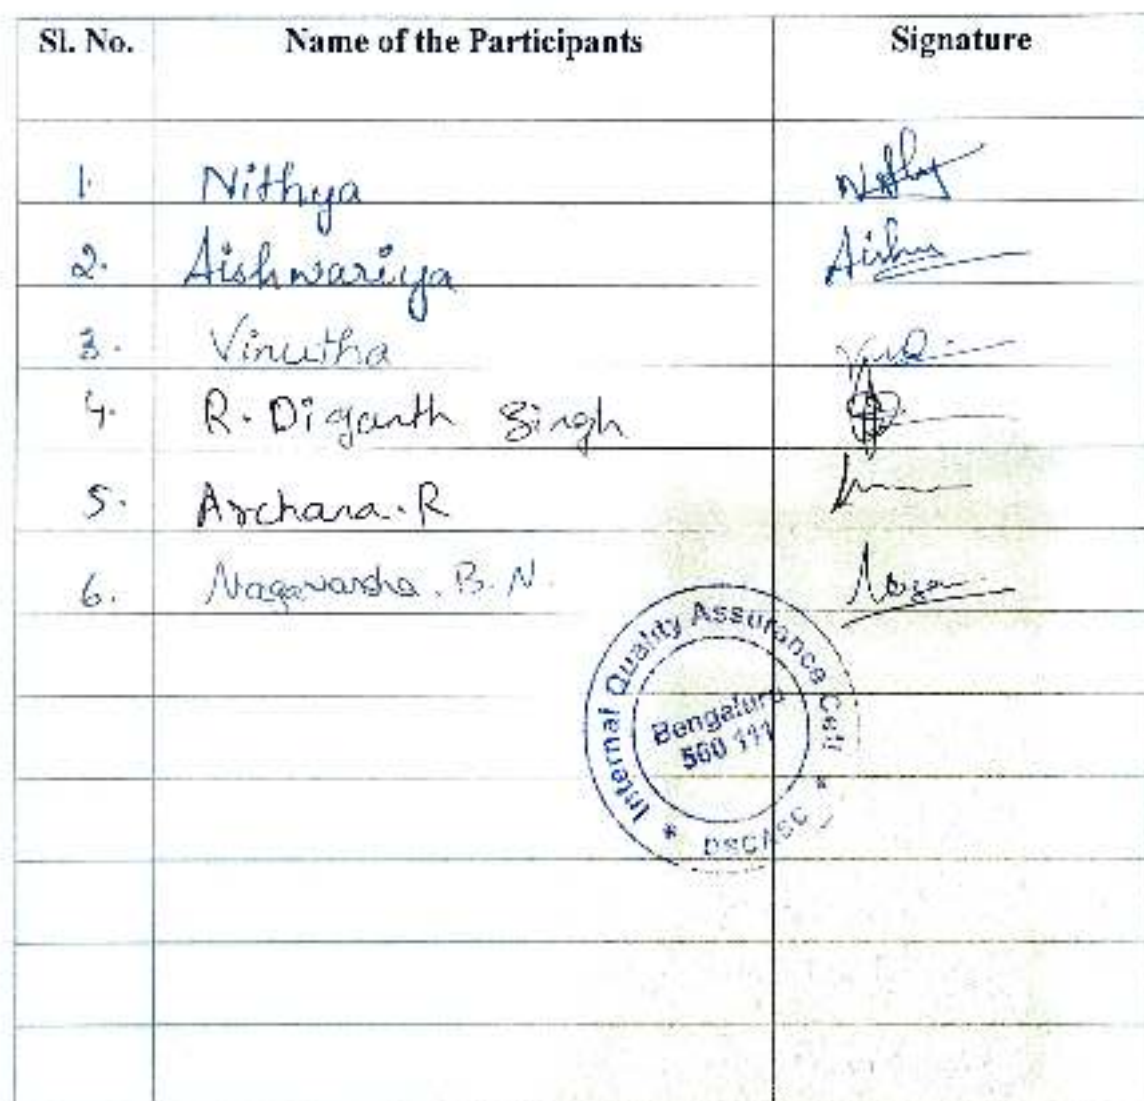 Sl. No. Name of the Participants Signature
1. Nithya Nithy
2. Aishwariya Aishu
3. Vinutha
4. R. Diganth Singh
5. Archana. R
6. Nagavarsha. B. N.
Internal Quality Assurance Cell
Bengaluru
560 111
* DSCASC *